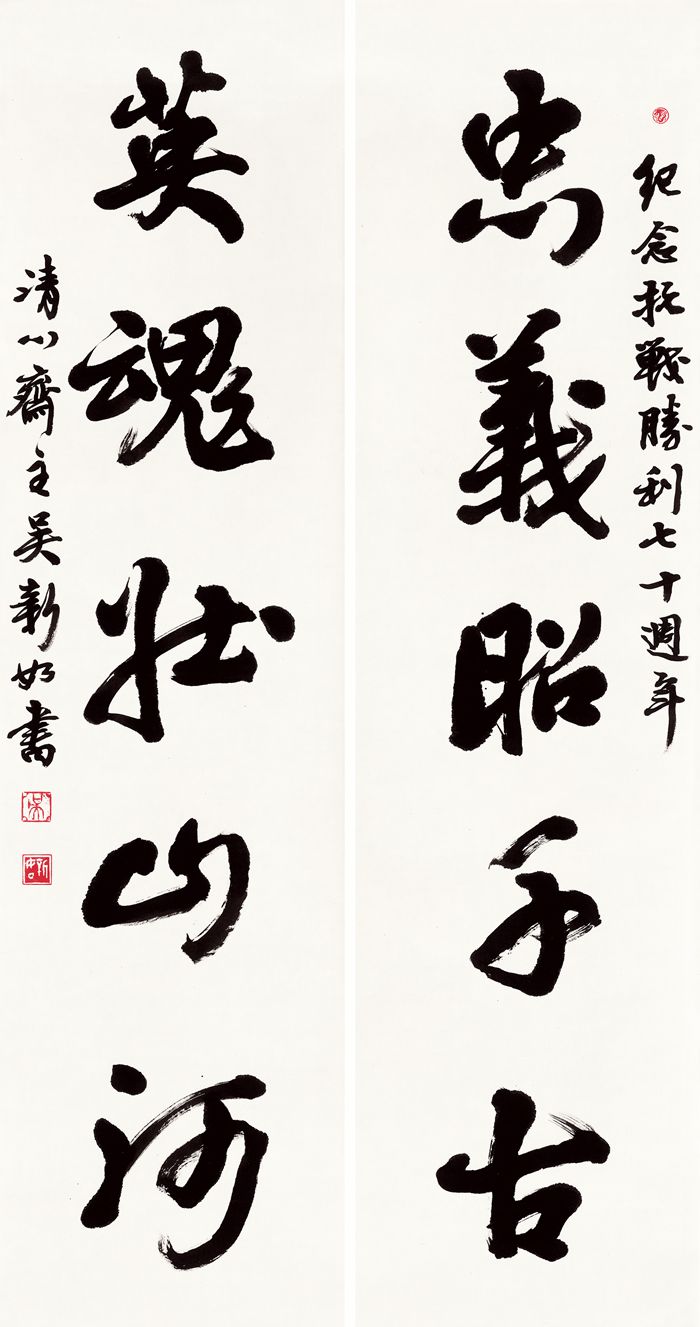 紀念抗戰勝利七十週年
忠義昭千古
英魂壯山河
清心齋主吴新如書